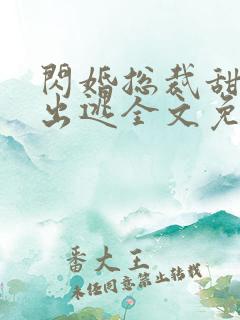 闪婚总裁甜
出逃全文免
番大王
未经同意禁止转载